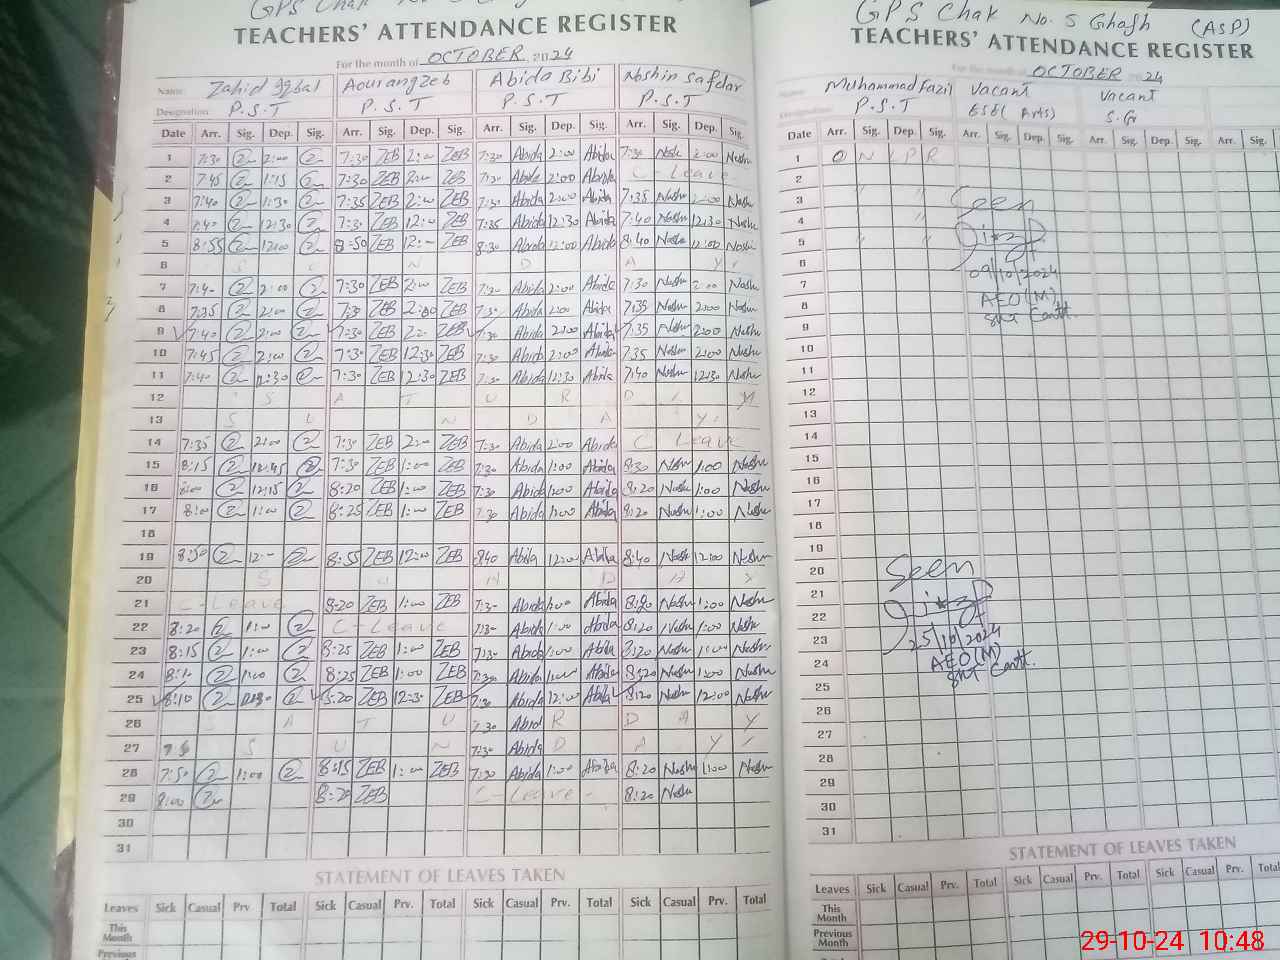 GPS Chak No. 5
TEACHERS' ATTENDANCE REGISTER
For the month of OCTOBER 2024
Name: Zahid Iqbal Aourangzeb Abida Bibi Noshin Safdar
Designation: P.S.T P.S.T P.S.T P.S.T
Date Arr. Sig. Dep. Sig. Arr. Sig. Dep. Sig. Arr. Sig. Dep. Sig. Arr. Sig. Dep. Sig.
1 7:30 2:00 7:30 ZEB 2:00 ZEB 7:30 Abida 2:00 Abida 7:30 Noshi 2:00 Noshi
2 7:45 1:15 7:30 ZEB 2:00 ZEB 7:30 Abida 2:00 Abida C-Leave
3 7:40 1:30 7:35 ZEB 2:00 ZEB 7:30 Abida 2:00 Abida 7:35 Noshi 2:00 Noshi
4 7:40 12:30 7:30 ZEB 12:00 ZEB 7:35 Abida 12:30 Abida 7:40 Noshi 12:30 Noshi
5 8:55 12:00 8:50 ZEB 12:- ZEB 8:30 Abida 12:00 Abida 8:40 Noshi 12:00 Noshi
6 S U N D A Y
7 7:40 2:00 7:30 ZEB 2:00 ZEB 7:30 Abida 2:00 Abida 7:30 Noshi 2:00 Noshi
8 7:35 2:00 7:30 ZEB 2:00 ZEB 7:30 Abida 2:00 Abida 7:35 Noshi 2:00 Noshi
9 7:40 2:00 7:30 ZEB 2:00 ZEB 7:30 Abida 2:00 Abida 7:35 Noshi 2:00 Noshi
10 7:45 2:00 7:30 ZEB 12:30 ZEB 7:30 Abida 2:00 Abida 7:35 Noshi 2:00 Noshi
11 7:40 12:30 7:30 ZEB 12:30 ZEB 7:30 Abida 12:30 Abida 7:40 Noshi 12:30 Noshi
12 S A T U R D A Y
13 S U N D A Y
14 7:35 2:00 7:30 ZEB 2:00 ZEB 7:30 Abida 2:00 Abida C Leave
15 8:15 12:45 7:30 ZEB 1:00 ZEB 7:30 Abida 1:00 Abida 8:30 Noshi 1:00 Noshi
16 8:00 12:15 8:20 ZEB 1:00 ZEB 7:30 Abida 1:00 Abida 8:20 Noshi 1:00 Noshi
17 8:00 1:00 8:25 ZEB 1:00 ZEB 7:30 Abida 1:00 Abida 8:20 Noshi 1:00 Noshi
18
19 8:50 12:- 8:55 ZEB 12:00 ZEB 8:40 Abida 12:00 Abida 8:40 Noshi 12:00 Noshi
20 S U N D A Y
21 C-Leave 8:20 ZEB 1:00 ZEB 7:30 Abida 1:00 Abida 8:20 Noshi 1:00 Noshi
22 8:20 1:00 C-Leave 7:30 Abida 1:00 Abida 8:20 Noshi 1:00 Noshi
23 8:15 1:00 8:25 ZEB 1:00 ZEB 7:30 Abida 1:00 Abida 8:20 Noshi 1:00 Noshi
24 8:10 1:00 8:25 ZEB 1:00 ZEB 7:30 Abida 1:00 Abida 8:20 Noshi 1:00 Noshi
25 8:10 8:20 ZEB 12:30 ZEB 7:30 Abida 12:00 Abida 8:20 Noshi 12:00 Noshi
26 S A T U 7:30 Abid R D A Y
27 S U N 7:30 Abida D A Y
28 7:50 1:00 8:15 ZEB 1:00 ZEB 7:30 Abida 1:00 Abida 8:20 Noshi 1:00 Noshi
29 8:00 8:20 ZEB C-Leave 8:20 Noshi
30
31
STATEMENT OF LEAVES TAKEN
Leaves Sick Casual Prv. Total Sick Casual Prv. Total Sick Casual Prv. Total Sick Casual Prv. Total
This Month
Previous
GPS Chak No. 5 Ghagh (ASP)
TEACHERS' ATTENDANCE REGISTER
For the month of OCTOBER 2024
Name: Muhammad Fazil Vacant Vacant
Designation: P.S.T ESE( Arts) S.G
Date Arr. Sig. Dep. Sig. Arr. Sig. Dep. Sig. Arr. Sig. Dep. Sig. Arr. Sig.
1 O N L P R
2
3 " "
4 "
5 " "
6
7
8
9
10
11
12
13
14
15
16
17
18
19
20
21
22
23
24
25
26
27
28
29
30
31
Seen
09/10/2024
AEO(M)
Seen
25/10/2024
AEO(M)
STATEMENT OF LEAVES TAKEN
Leaves Sick Casual Prv. Total Sick Casual Prv. Total Sick Casual Prv. Total
This Month
Previous Month
29-10-24 10:48